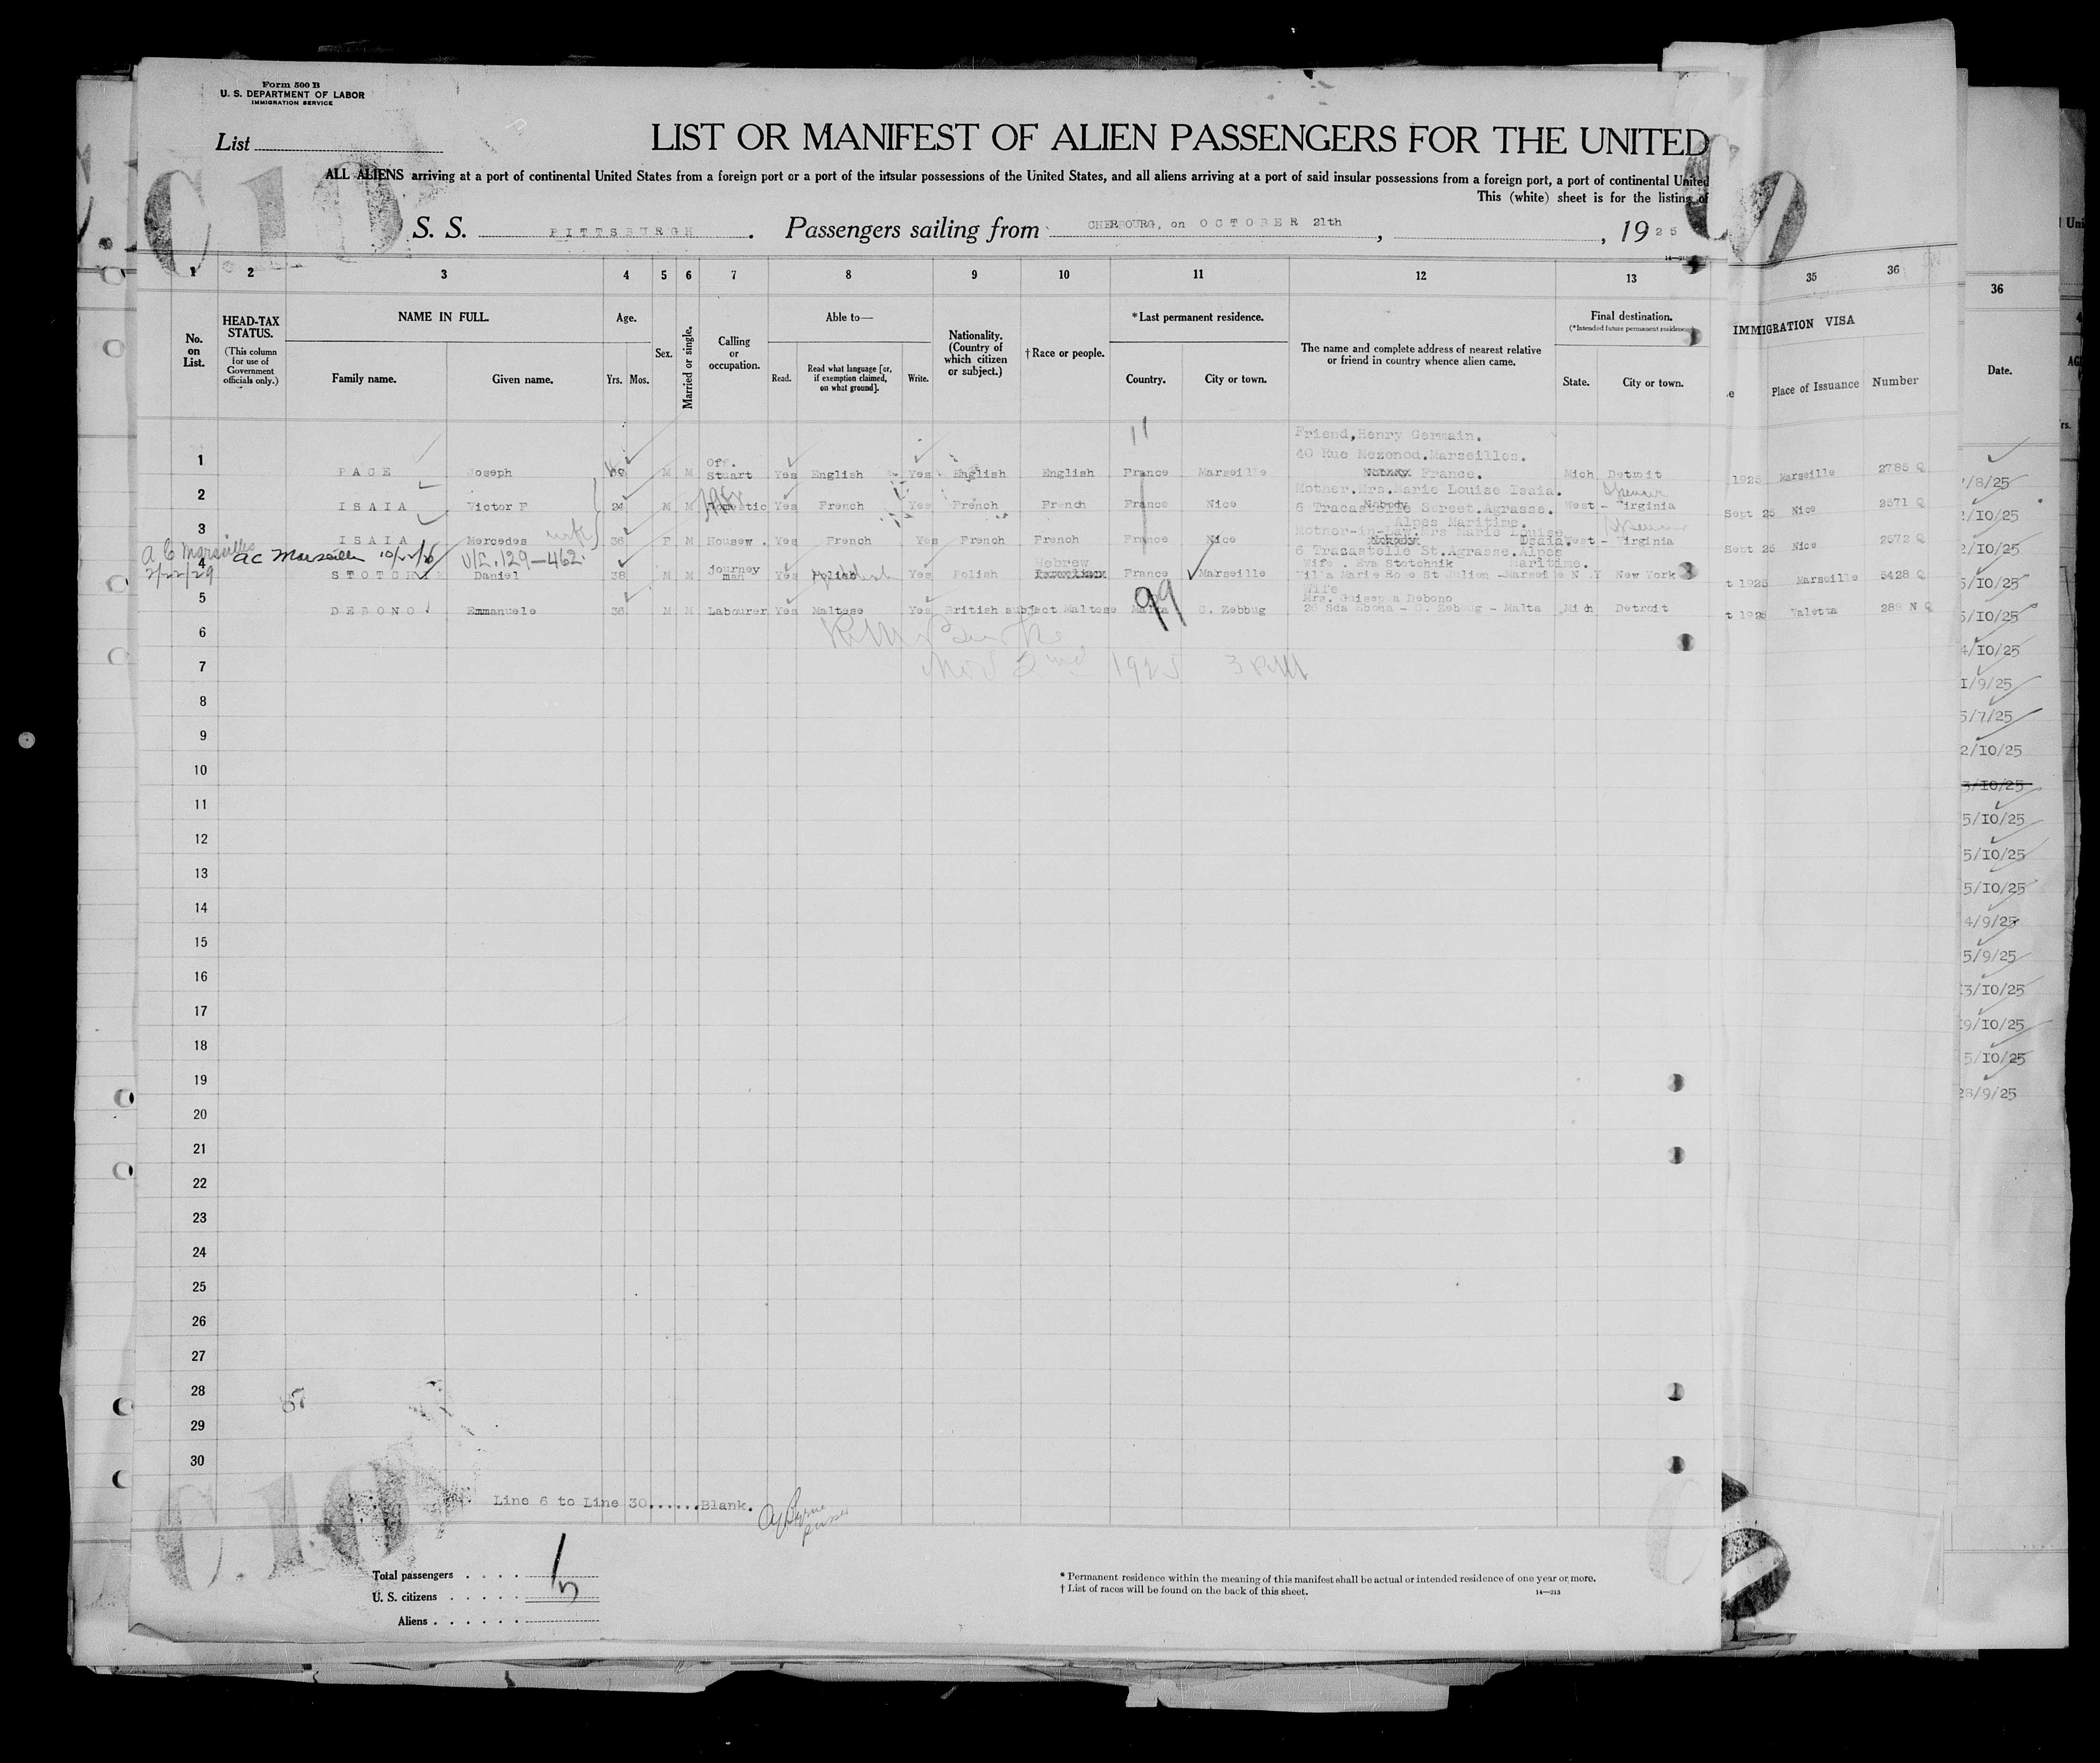 Form 500 B
U. S. DEPARTMENT OF LABOR
IMMIGRATION SERVICE
List
LIST OR MANIFEST OF ALIEN PASSENGERS FOR THE UNITED
ALL ALIENS arriving at a port of continental United States from a foreign port or a port of the insular possessions of the United States, and all aliens arriving at a port of said insular possessions from a foreign port, a port of continental United
This (white) sheet is for the listing of
S. S. PITTSBURGH. Passengers sailing from CHERBOURG, on OCTOBER 21th, , 1925
1 2 3 4 5 6 7 8 9 10 11 12 13 35 36
No. on List.
HEAD-TAX STATUS.
(This column for use of Government officials only.)
NAME IN FULL.
Family name. Given name.
Age.
Yrs. Mos.
Sex.
Married or single.
Calling or occupation.
Able to—
Read. Read what language [or, if exemption claimed, on what ground]. Write.
Nationality. (Country of which citizen or subject.)
†Race or people.
*Last permanent residence.
Country. City or town.
The name and complete address of nearest relative or friend in country whence alien came.
Final destination.
(*Intended future permanent residence)
State. City or town.
IMMIGRATION VISA
Place of Issuance Number
36
Date.
11
Friend, Henry Germain.
40 Rue Mezenod. Marseilles.
1 PACE Joseph M M Off. Stuart Yes English Yes English English France Marseille France. Mich Detroit 1925 Marseille 2785 Q
Mother. Mrs. Marie Louise Isaia.
2 ISAIA Victor F 24 M M Domestic Yes French Yes French French France Nice 6 Tracastelle Street. Agrasse. Alpes Maritime. West - Virginia Spencer Sept 25 Nice 2571 Q
Mother-in-Law. Mrs Marie Louise Isaia.
3 ISAIA Mercedes wife 36 F M Housew. Yes French Yes French French France Nice 6 Tracastelle St. Agrasse. Alpes Maritime. West - Virginia Spencer Sept 25 Nice 2572 Q
A C Marseilles 2/22/29
AC Marseille V/L.129—462
4 STOTCHNIK Daniel 38 M M journey man Yes Polish Yes Polish Hebrew France Marseille Wife. Eva Stotchnik Villa Marie Rose St Julien - Marseille N.Y New York t 1925 Marseille 5428 Q
5 DEBONO Emmanuele 36 M M Labourer Yes Maltese Yes British subject Maltese Malta C. Zebbug Wife Mrs. Guiseppa Debono 26 Sda Abona - C. Zebbug - Malta Mich Detroit t 1925 Valetta 288 N Q
99
6
7
Nov 2nd 1925
8
9
10
11
12
13
14
15
16
17
18
19
20
21
22
23
24
25
26
27
28
29
30
/8/25
/10/25
2/10/25
5/10/25
5/10/25
4/10/25
1/9/25
5/7/25
2/10/25
3/10/25
5/10/25
5/10/25
5/10/25
4/9/25
5/9/25
3/10/25
9/10/25
5/10/25
28/9/25
Line 6 to Line 30......Blank.
Total passengers
U. S. citizens
Aliens
5
* Permanent residence within the meaning of this manifest shall be actual or intended residence of one year or more.
† List of races will be found on the back of this sheet.
14—213
C.10